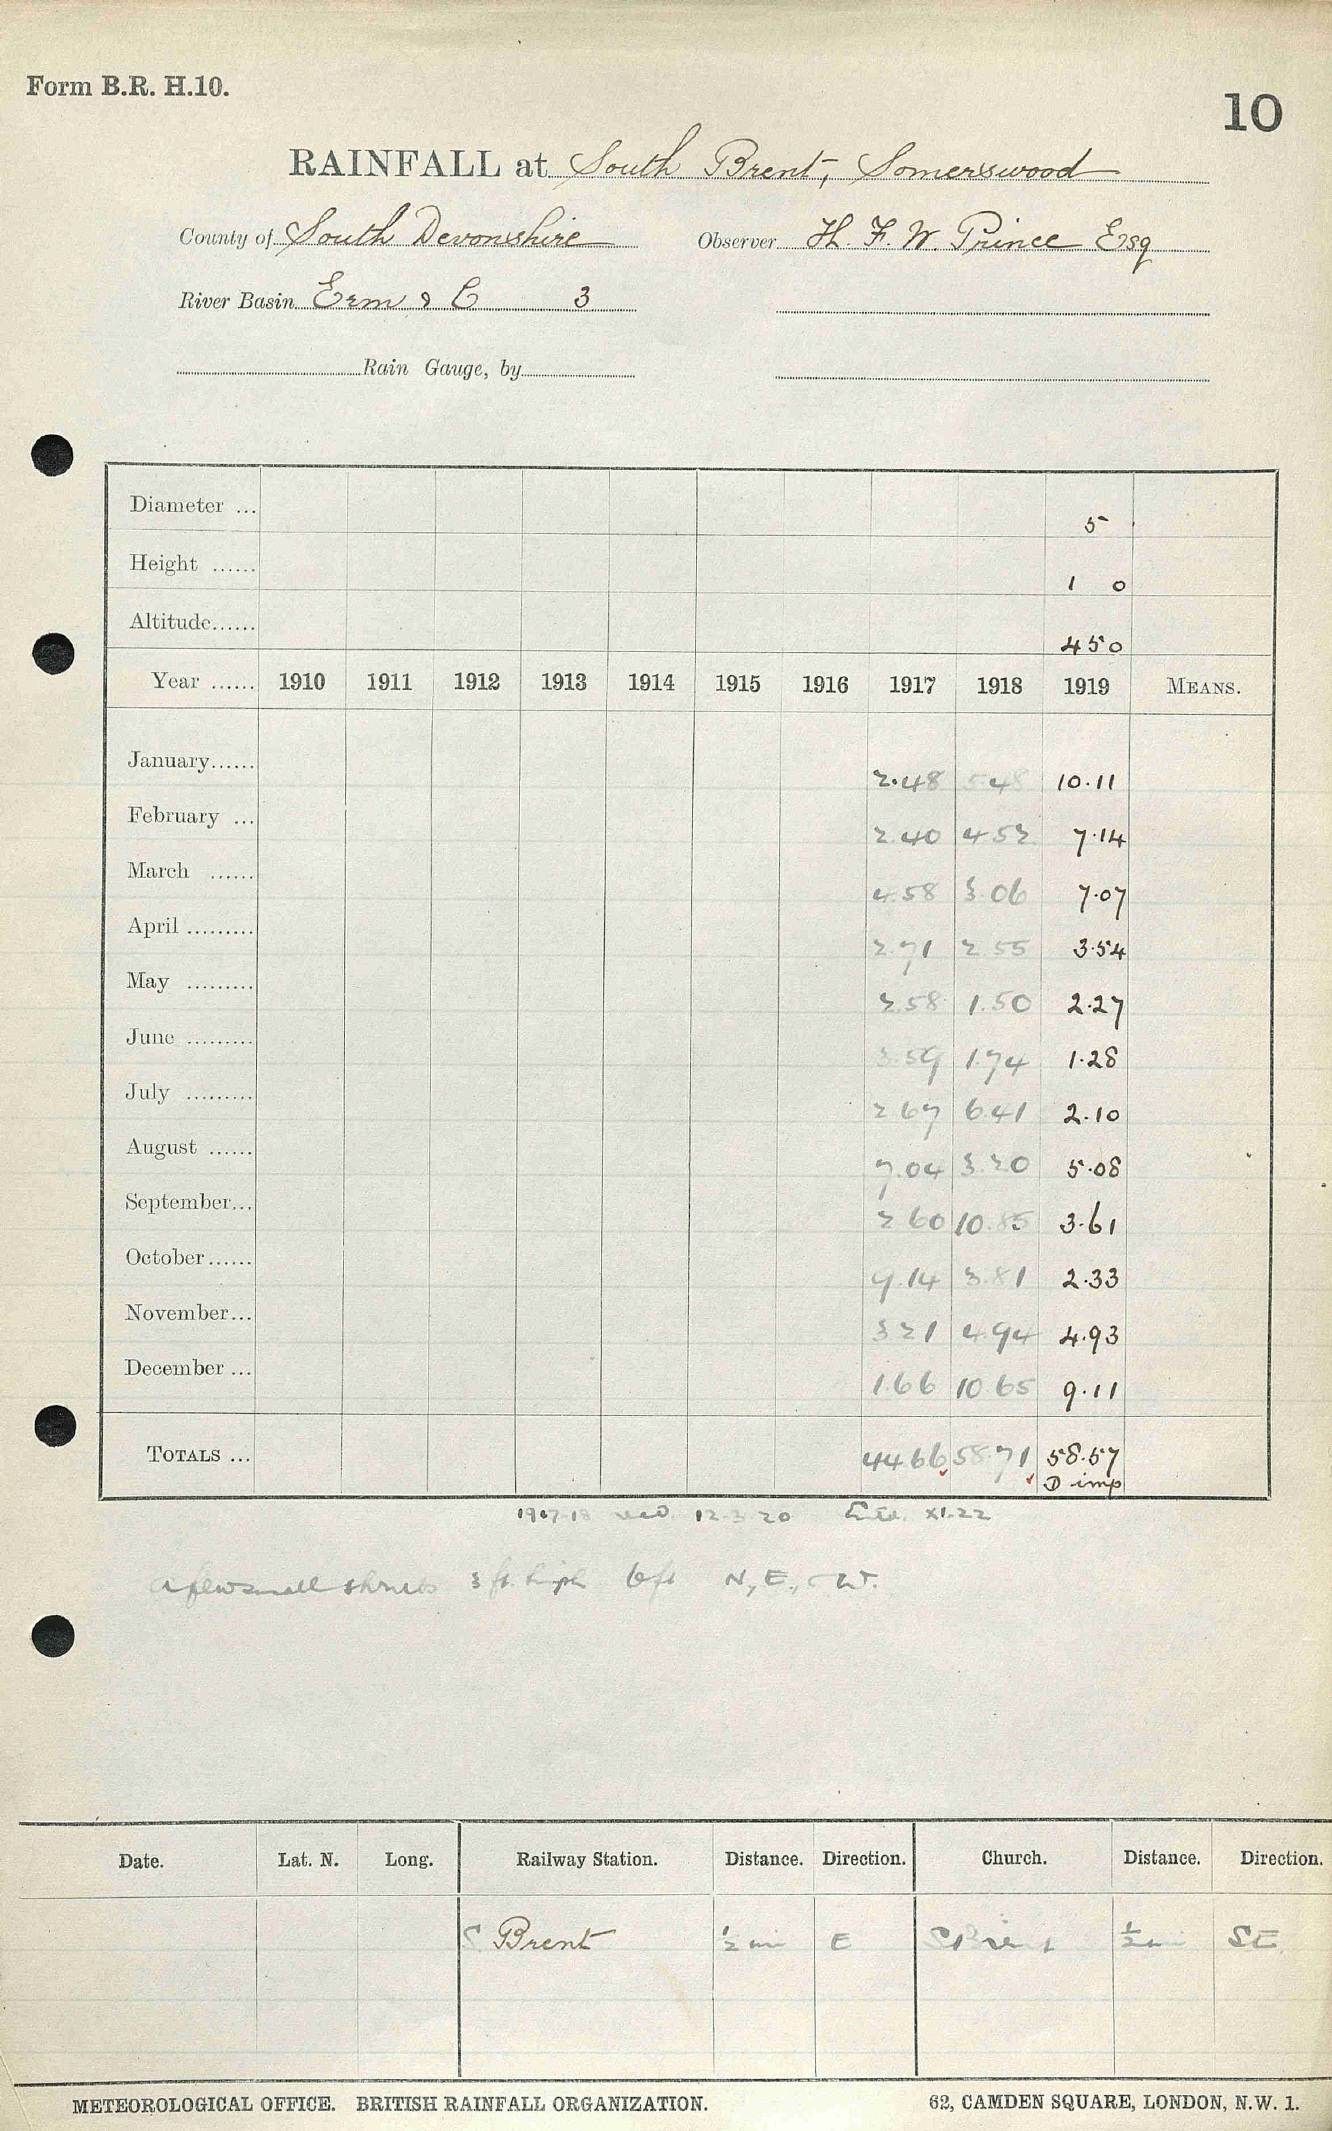 Form B.R. H.10.
10
RAINFALL at South Brent, Somerswood
County of South Devonshire Observer H. F. W. Prince Esq
River Basin Erm & C 3
Rain Gauge, by
Diameter ... 5
Height ...... 1 0
Altitude...... 450
Year ...... 1910 1911 1912 1913 1914 1915 1916 1917 1918 1919 MEANS.
January...... 2.48 5.48 10.11
February ... 2.40 4.52 7.14
March ...... 4.58 3.06 7.07
April ......... 2.71 2.55 3.54
May ......... 2.58 1.50 2.27
June ......... 3.59 1.74 1.28
July ......... 2.67 6.41 2.10
August ...... 7.04 3.20 5.08
September... 2.60 10.85 3.61
October...... 9.14 3.81 2.33
November... 3.21 4.94 4.93
December ... 1.66 10.65 9.11
TOTALS ... 44.66 58.71 58.57
D imp
1917-18 recd. 12.3.20 XI.22
a few small shrubs 3 ft. high 6ft N, E, & W.
Date. Lat. N. Long. Railway Station. Distance. Direction. Church. Distance. Direction.
S Brent ½ mi E S Brent ½ mi SE
METEOROLOGICAL OFFICE. BRITISH RAINFALL ORGANIZATION. 62, CAMDEN SQUARE, LONDON, N.W. 1.